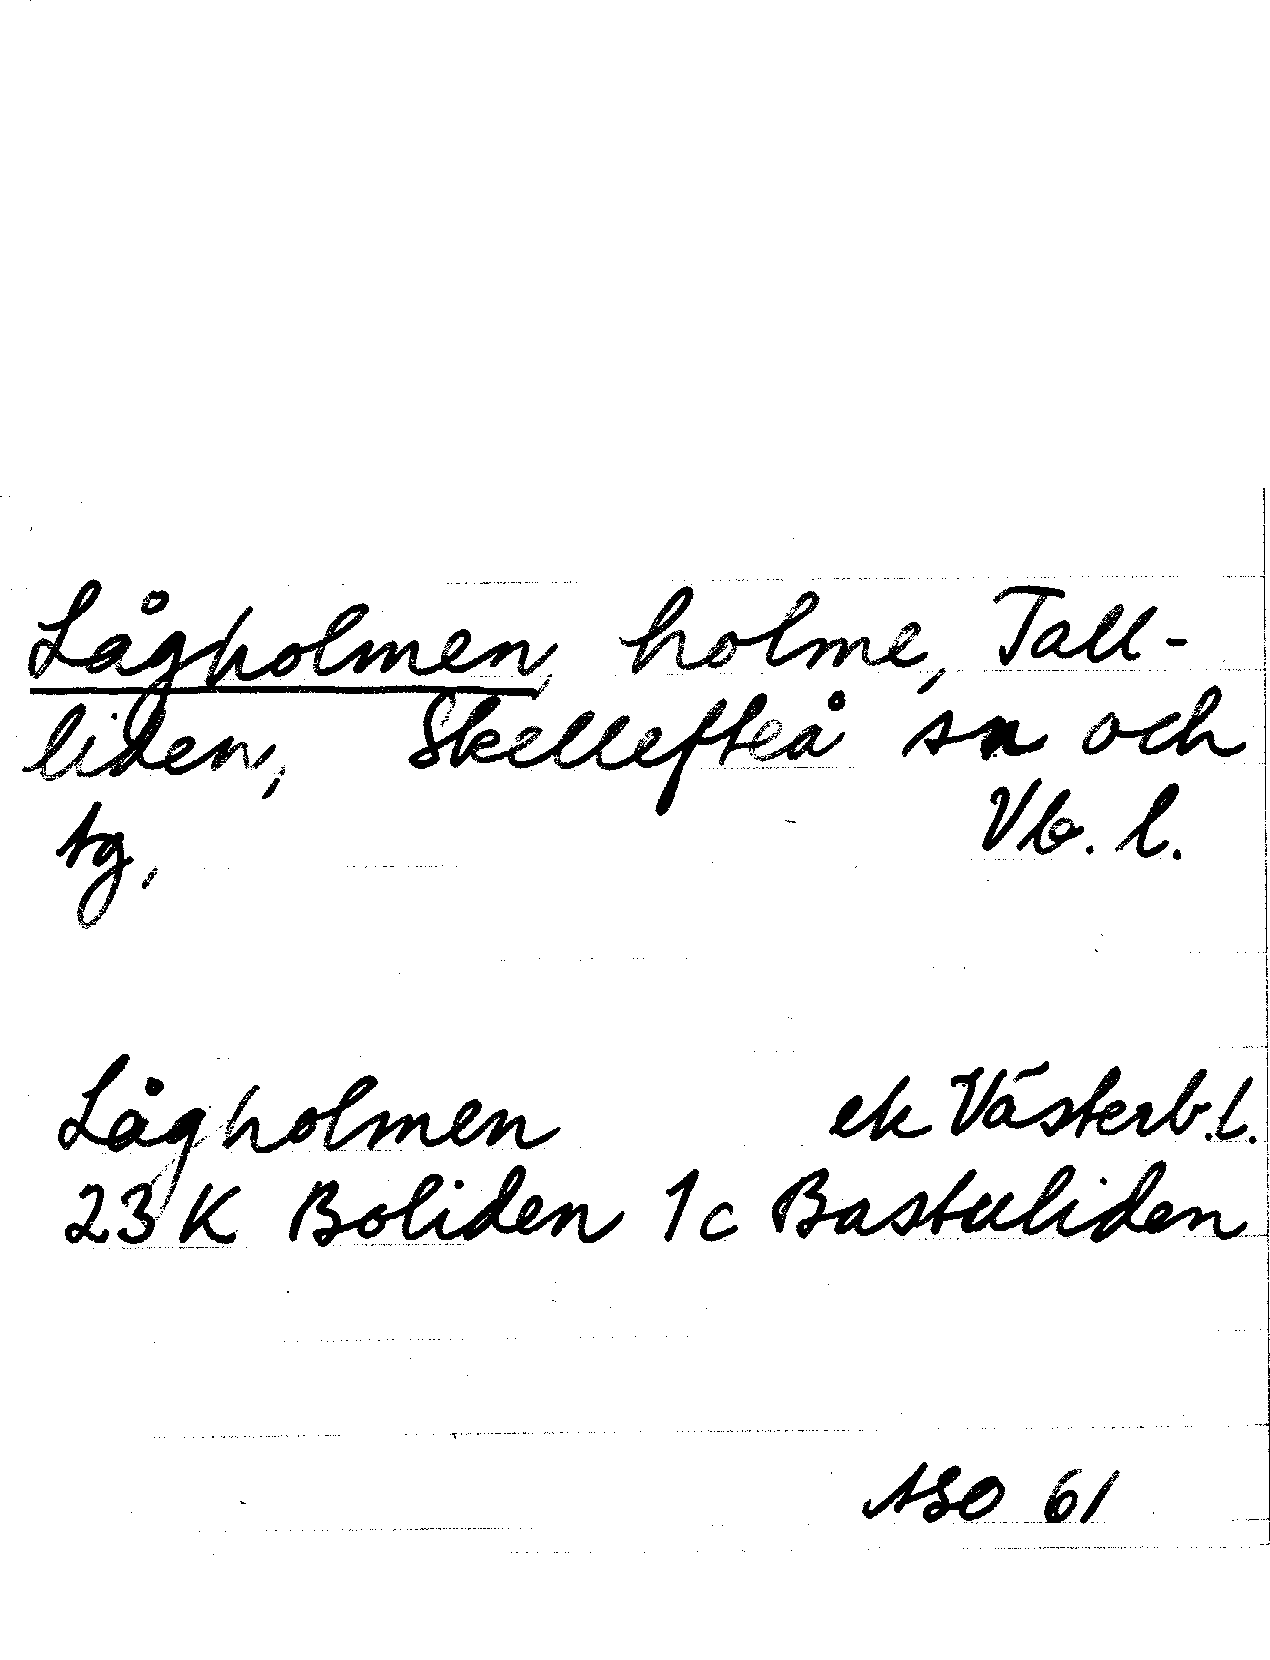 Lågholmen, holme, Tall-
liden, Skellefteå sn och
tg, Vb. l.
Lågholmen ek Västerb.l.
23 K Boliden 1c Bastuliden
ASO 61